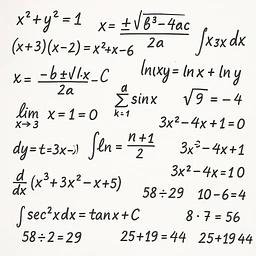 x² + y² = 1
x = ±√(b³ − 4ac) / 2a
∫x3x dx
(x+3)(x−2) = x²+x−6
x = −b ± √1·x / 2a − C
ln xy = ln x + ln y
a ∑ k=1 sin x
√9 = −4
lim x→3 x = 1 = 0
3x² − 4x + 1 = 0
dy = t = 3x−
∫ln = n+1 / 2
3x² − 4x + 1
d/dx (x³ + 3x² − x + 5)
3x² − 4x = 10
58 ÷ 29
10 − 6 = 4
∫sec² x dx = tan x + C
8 · 7 = 56
58 ÷ 2 = 29
25 + 19 = 44
25 + 19 44